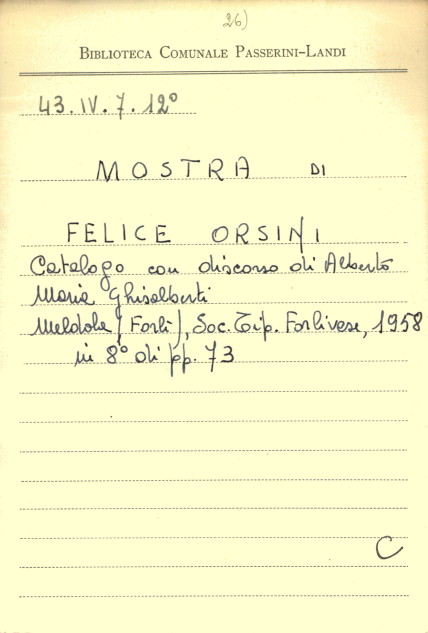 26)
BIBLIOTECA COMUNALE PASSERINI-LANDI
43.IV.7.12°
MOSTRA DI
FELICE ORSINI
Catalogo con discorso di Alberto
Maria Ghisalberti
Meldola (Forlì), Soc. Tip. Forlivese, 1958
in 8° di pp. 73
C